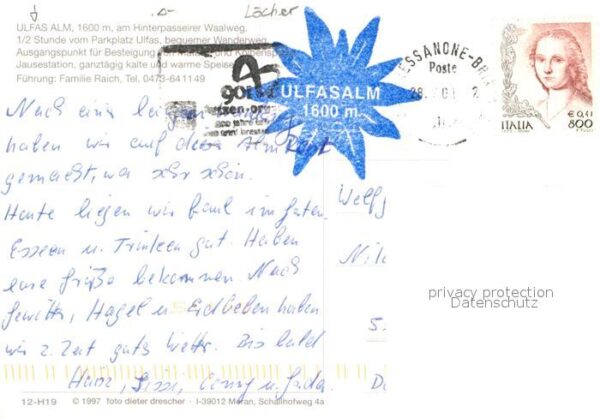 Löcher
ULFAS ALM, 1600 m, am Hinterpasseirer Waalweg.
1/2 Stunde vom Parkplatz Ulfas, bequemer Wanderweg.
Ausgangspunkt für Besteigung
Jausestation, ganztägig kalte und warme Speisen
Führung: Familie Raich, Tel. 0473-641149
ULFASALM
1600 m.
ESSANONE-BR
Poste
€ 0,41
ITALIA 800
Nach einer
haben wir auf dieser Alm Rast
gemacht, war sehr schön.
Heute liegen wir faul im Garten.
Essen u. Trinken gut. Haben
eure Grüße bekommen. Nach
Gewitter, Hagel u. Erdbeben haben
wir z. Zeit gutes Wetter. Bis bald
Hans, Sissi, Conny u.
privacy protection
Datenschutz
12-H19 © 1997 foto dieter drescher · I-39012 Meran, Schallhofweg 4a